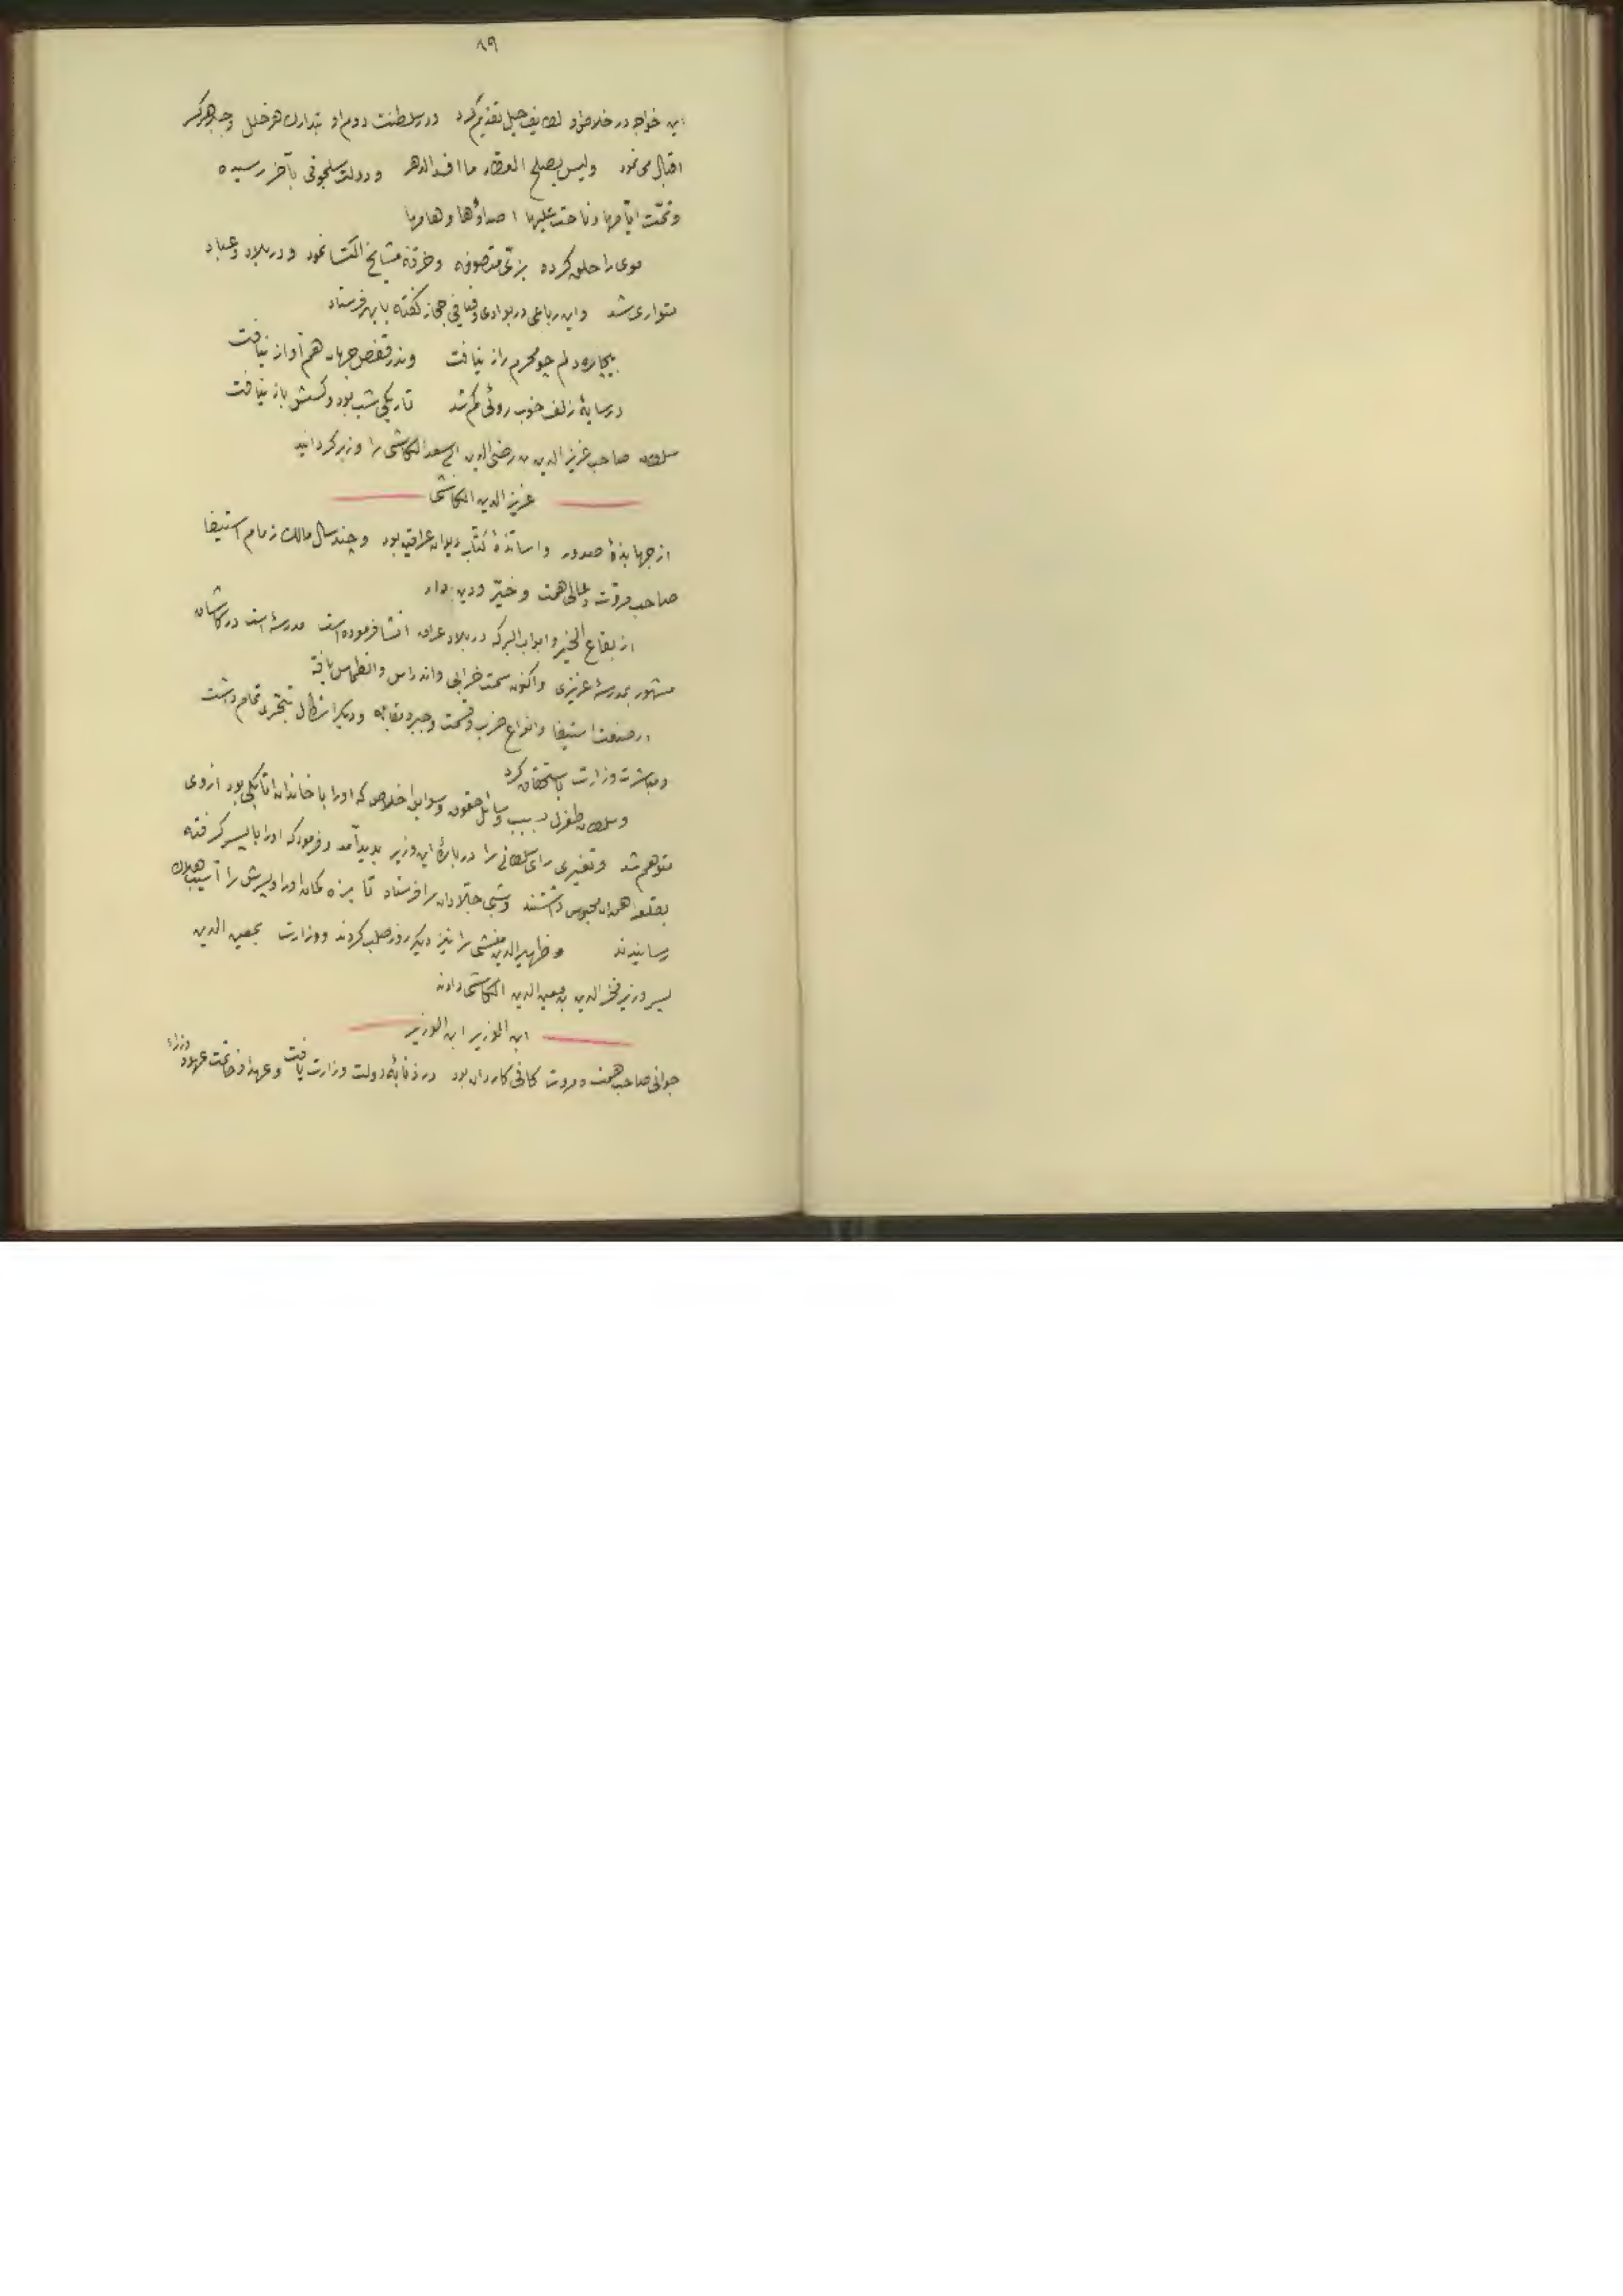 ٨٩
این خواجه در خلاص او لطایف حیل تقدیم کرد و در سلطنت دوم او بتدارک هر خلل و جبر هر کسر
اقبال می نمود ولیس یصلح العطار ما افسد الدهر و دولت سلجوقی بآخر رسیده
وتمّت ایّامها وناحت علیها اصداؤها وهامها
موی را حلق کرده بزیّ متصوفه و خرقهٔ مشایخ اکتسا نمود و در بلاد و عباد
متواری شد و این رباعی در بوادی و فیافی حجاز گفته بابهر فرستاد
بیچاره دلم چو محرم راز نیافت وندر قفص جهان هم آواز نیافت
در سایهٔ زلف خوب روئی گم شد تاریکی شب بود و کسش باز نیافت
سلطان صاحب عزیز الدین بن رضی الدین ابی سعد الکاشی را وزیر گردانید
عزیز الدین الکاشی
از جهابذهٔ صدور و اساتذهٔ کتّاب دیوان عراقین بود و چند سال مالک زمام استیفا
صاحب مروّت و عالی همت و خیّر و دین دار
از بقاع الخیر و ابواب البر که در بلاد عراق انشا فرموده است مدرسهٔ است در کاشان
مشهور بمدرسهٔ عزیزی و اکنون سمت خرابی و اندراس و انطماس یافته
در صنعت استیفا و انواع ضرب و قسمت و جبر و مقابله و دیگر اشکال تبحّری تمام داشت
و مباشرت وزارت باستحقاق کرد
و سلطان طغرل بسبب وسائل حقوق و سوابق اخلاص که او را با خاندان اتابکی بود از وی
متوهم شد و تغیری رای سلطانی را در بارهٔ این وزیر پدید آمد و فرمود که او را با پسر گرفته
بقلعه همدان محبوس داشتند و شبی جلّادان را فرستاد تا بزه کمان او را و پسرش را آسیب هلاک
رسانیدند و ظهیر الدین منشی را نیز دیگر روز صلب کردند و وزارت بمعین الدین
پسر وزیر فخر الدین بن معین الدین الکاشی دادند
ابن الوزیر ابن الوزیر
جوانی صاحب همت و مروت کافی کاردان بود در ذنابهٔ دولت وزارت یافت و عهد او خاتمت عهود وزراء